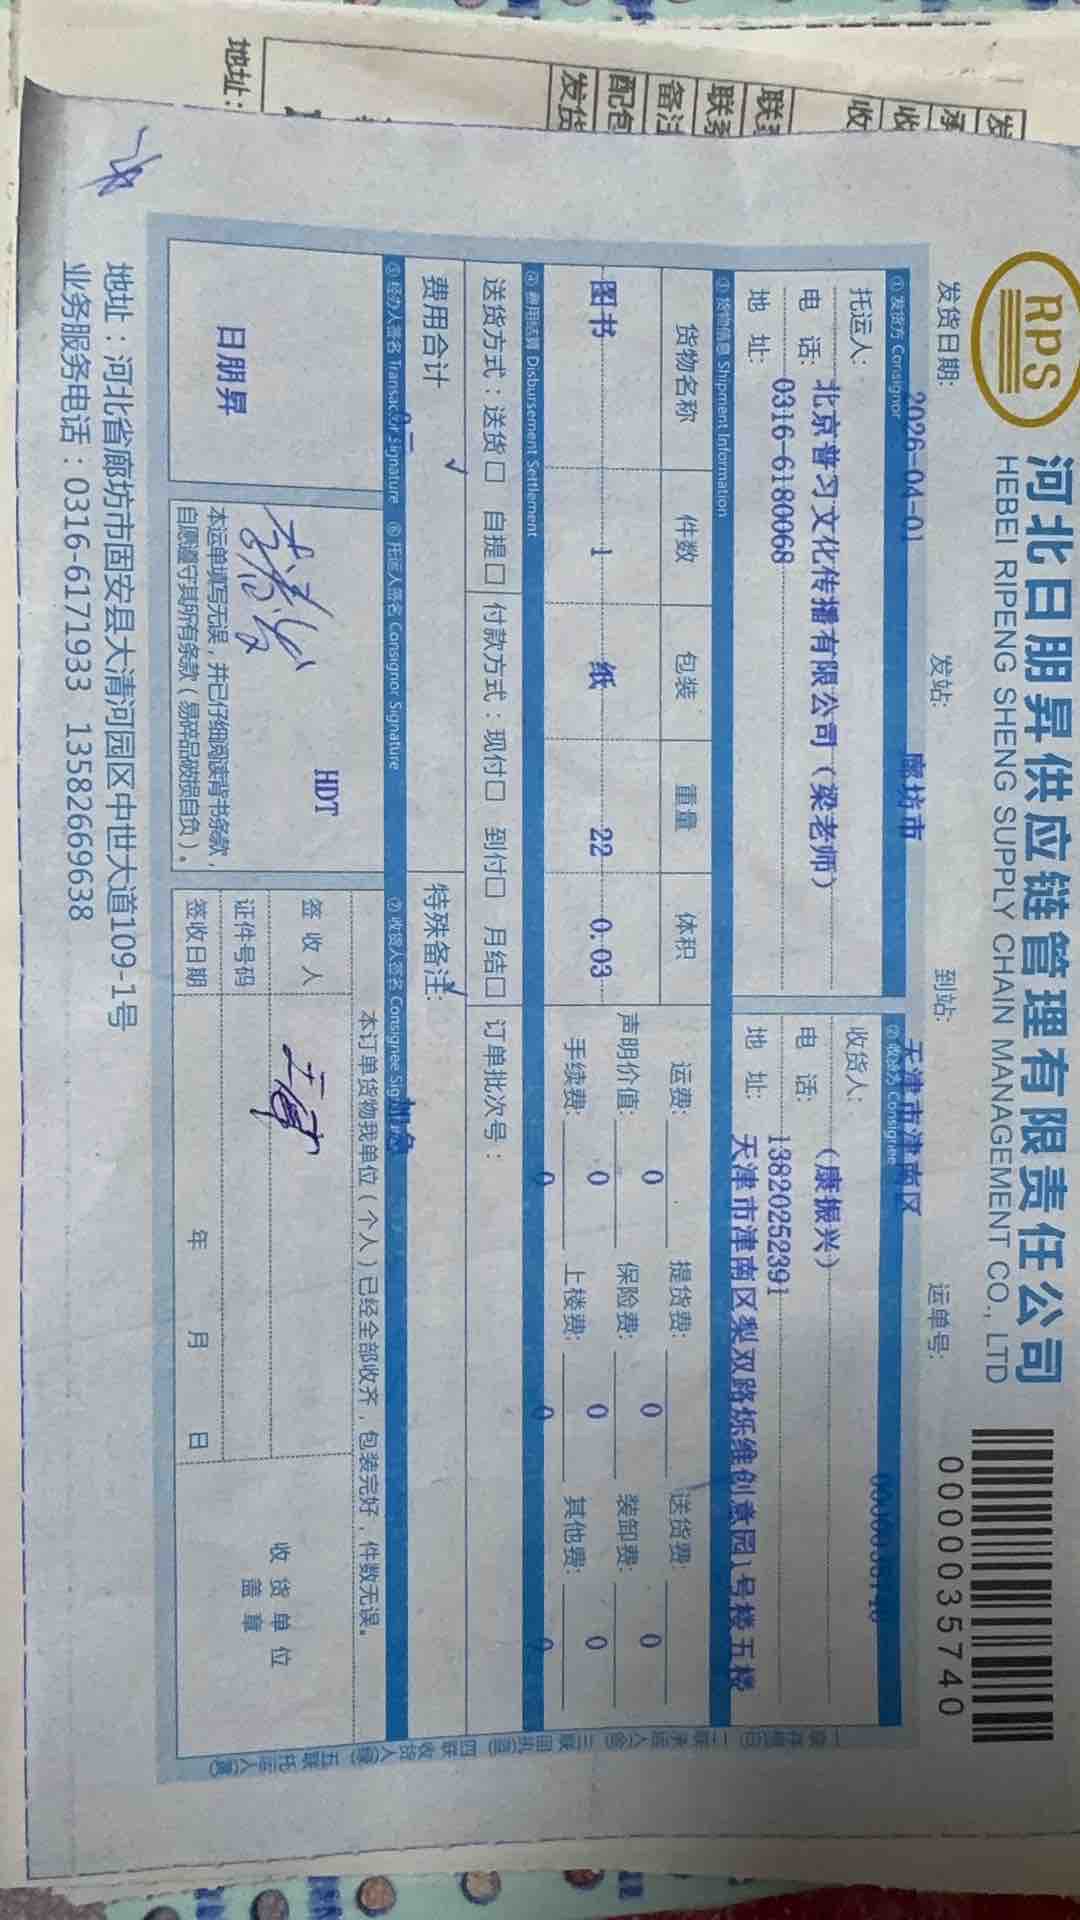 地址：
发货
配包
备注
联系
联系
收
收
承
发
RPS
河北日朋昇供应链管理有限责任公司
HEBEI RIPENG SHENG SUPPLY CHAIN MANAGEMENT CO., LTD
0000035740
发货日期: 2026-04-01 发站: 廊坊市 到站: 天津市津南区 运单号:
① 发货方 Consignor
托运人: 北京普习文化传播有限公司（梁老师）
电 话: 0316-6180068
地 址:
② 收货方 Consignee
收货人: （康振兴）
电 话: 13820252391
地 址: 天津市津南区梨双路烁维创意园1号楼五楼
③ 货物信息 Shipment Information
货物名称 件数 包装 重量 体积
图书 1 纸 22 0.03
运费: 0 提货费: 0 送货费: 0
声明价值: 0 保险费: 0 装卸费: 0
手续费: 0 上楼费: 0 其他费: 0
④ 费用结算 Disbursement Settlement
送货方式：送货□ 自提□ 付款方式：现付□ 到付□ 月结□ 订单批次号：
费用合计 特殊备注:
⑤ 经办人签名 Transactor Signature ⑥ 托运人签名 Consignor Signature ⑦ 收货人签名 Consignee Sig
日朋昇
HDT
本运单填写无误，并已仔细阅读背书条款，
自愿遵守其所有条款（易碎品破损自负）。
本订单货物我单位（个人）已经全部收齐，包装完好，件数无误。
签收人
证件号码
签收日期 年 月 日
收货单位
盖章
地址：河北省廊坊市固安县大清河园区中世大道109-1号
业务服务电话：0316-6171933 13582669638